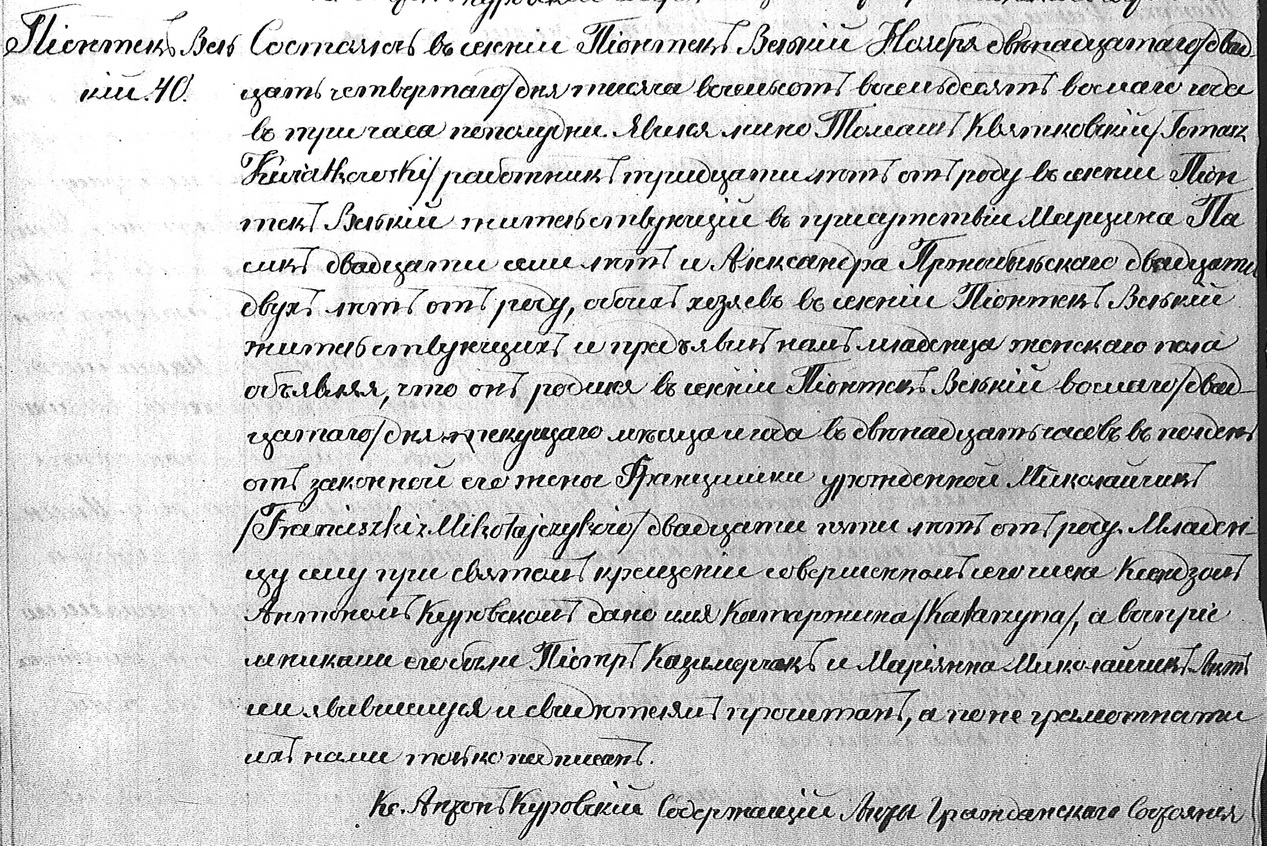 Піонтекъ Вель Состоялось въ селеніи Піонтекъ Велькій Ноября двѣнадцатаго/двад-
кій. 40. цать четвертаго/дня тысяча восемьсотъ восемьдесятъ восьмаго года
въ три часа пополудни. Явился лично Томашъ Квятковскій/Tomasz
Kwiatkowski/работникъ тридцати лѣтъ отъ роду въ селеніи Піон
текъ Велькій жительствующій въ присутствіи Марцина Па
сикъ двадцати семи лѣтъ и Александра двадцати
двухъ лѣтъ отъ роду, обоихъ хозяевъ въ селеніи Піонтекъ Велькій
жительствующихъ и предъявилъ намъ младенца женскаго пола
объявляя, что онъ родился въ селеніи Піонтекъ Велькій восьмаго/двад-
цатаго/дня текущаго мѣсяца и года въ двѣнадцать часовъ въ полдень
отъ законной его жены Францишки урожденной Миколайчикъ
/Franciszki z Mikołajczyków/двадцати пяти лѣтъ отъ роду. Младен-
цу сему при святомъ крещеніи совершенномъ сего числа Ксендзомъ
Антономъ Куровскомъ дано имя Катаржина/Katarzyna/, а воспріе
мниками его были Піотръ Казимерчакъ и Маріянна Миколайчикъ. Актъ
сей явившемуся и свидѣтелямъ прочитанъ, а по не грамотности
ихъ нами только подписанъ.
Кс. Антонъ Куровскій Содержающій Акты Гражданскаго Состоянія